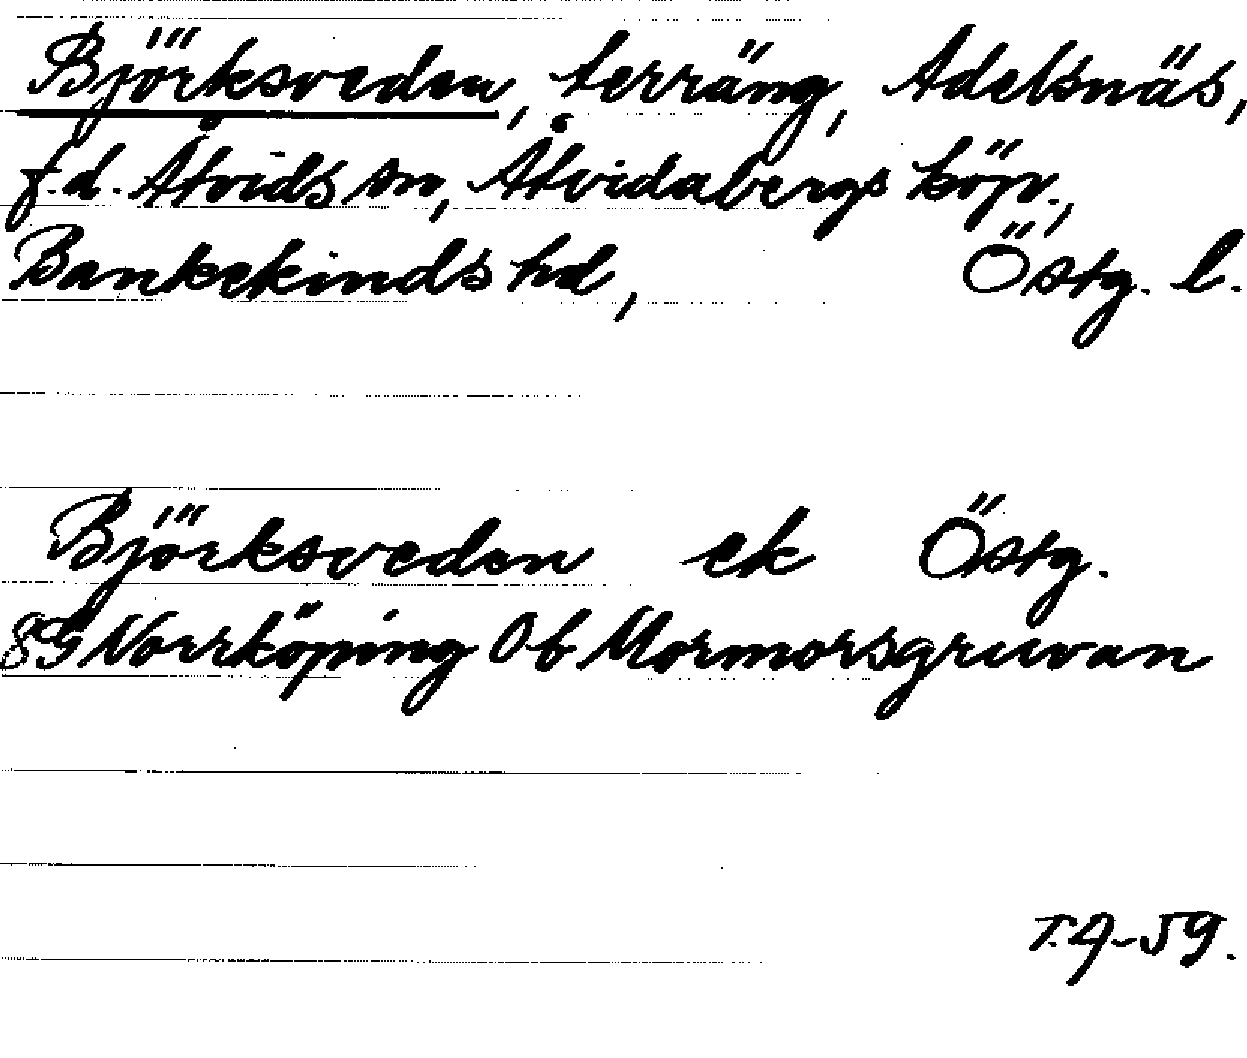 Björksveden, terräng, Adelsnäs,
f.d. Åtvids sn, Åtvidabergs köp.,
Bankekinds hd, Östg. l.
Björksveden ek Östg.
8G Norrköping Ob Mormorsgruvan
T.A-59.